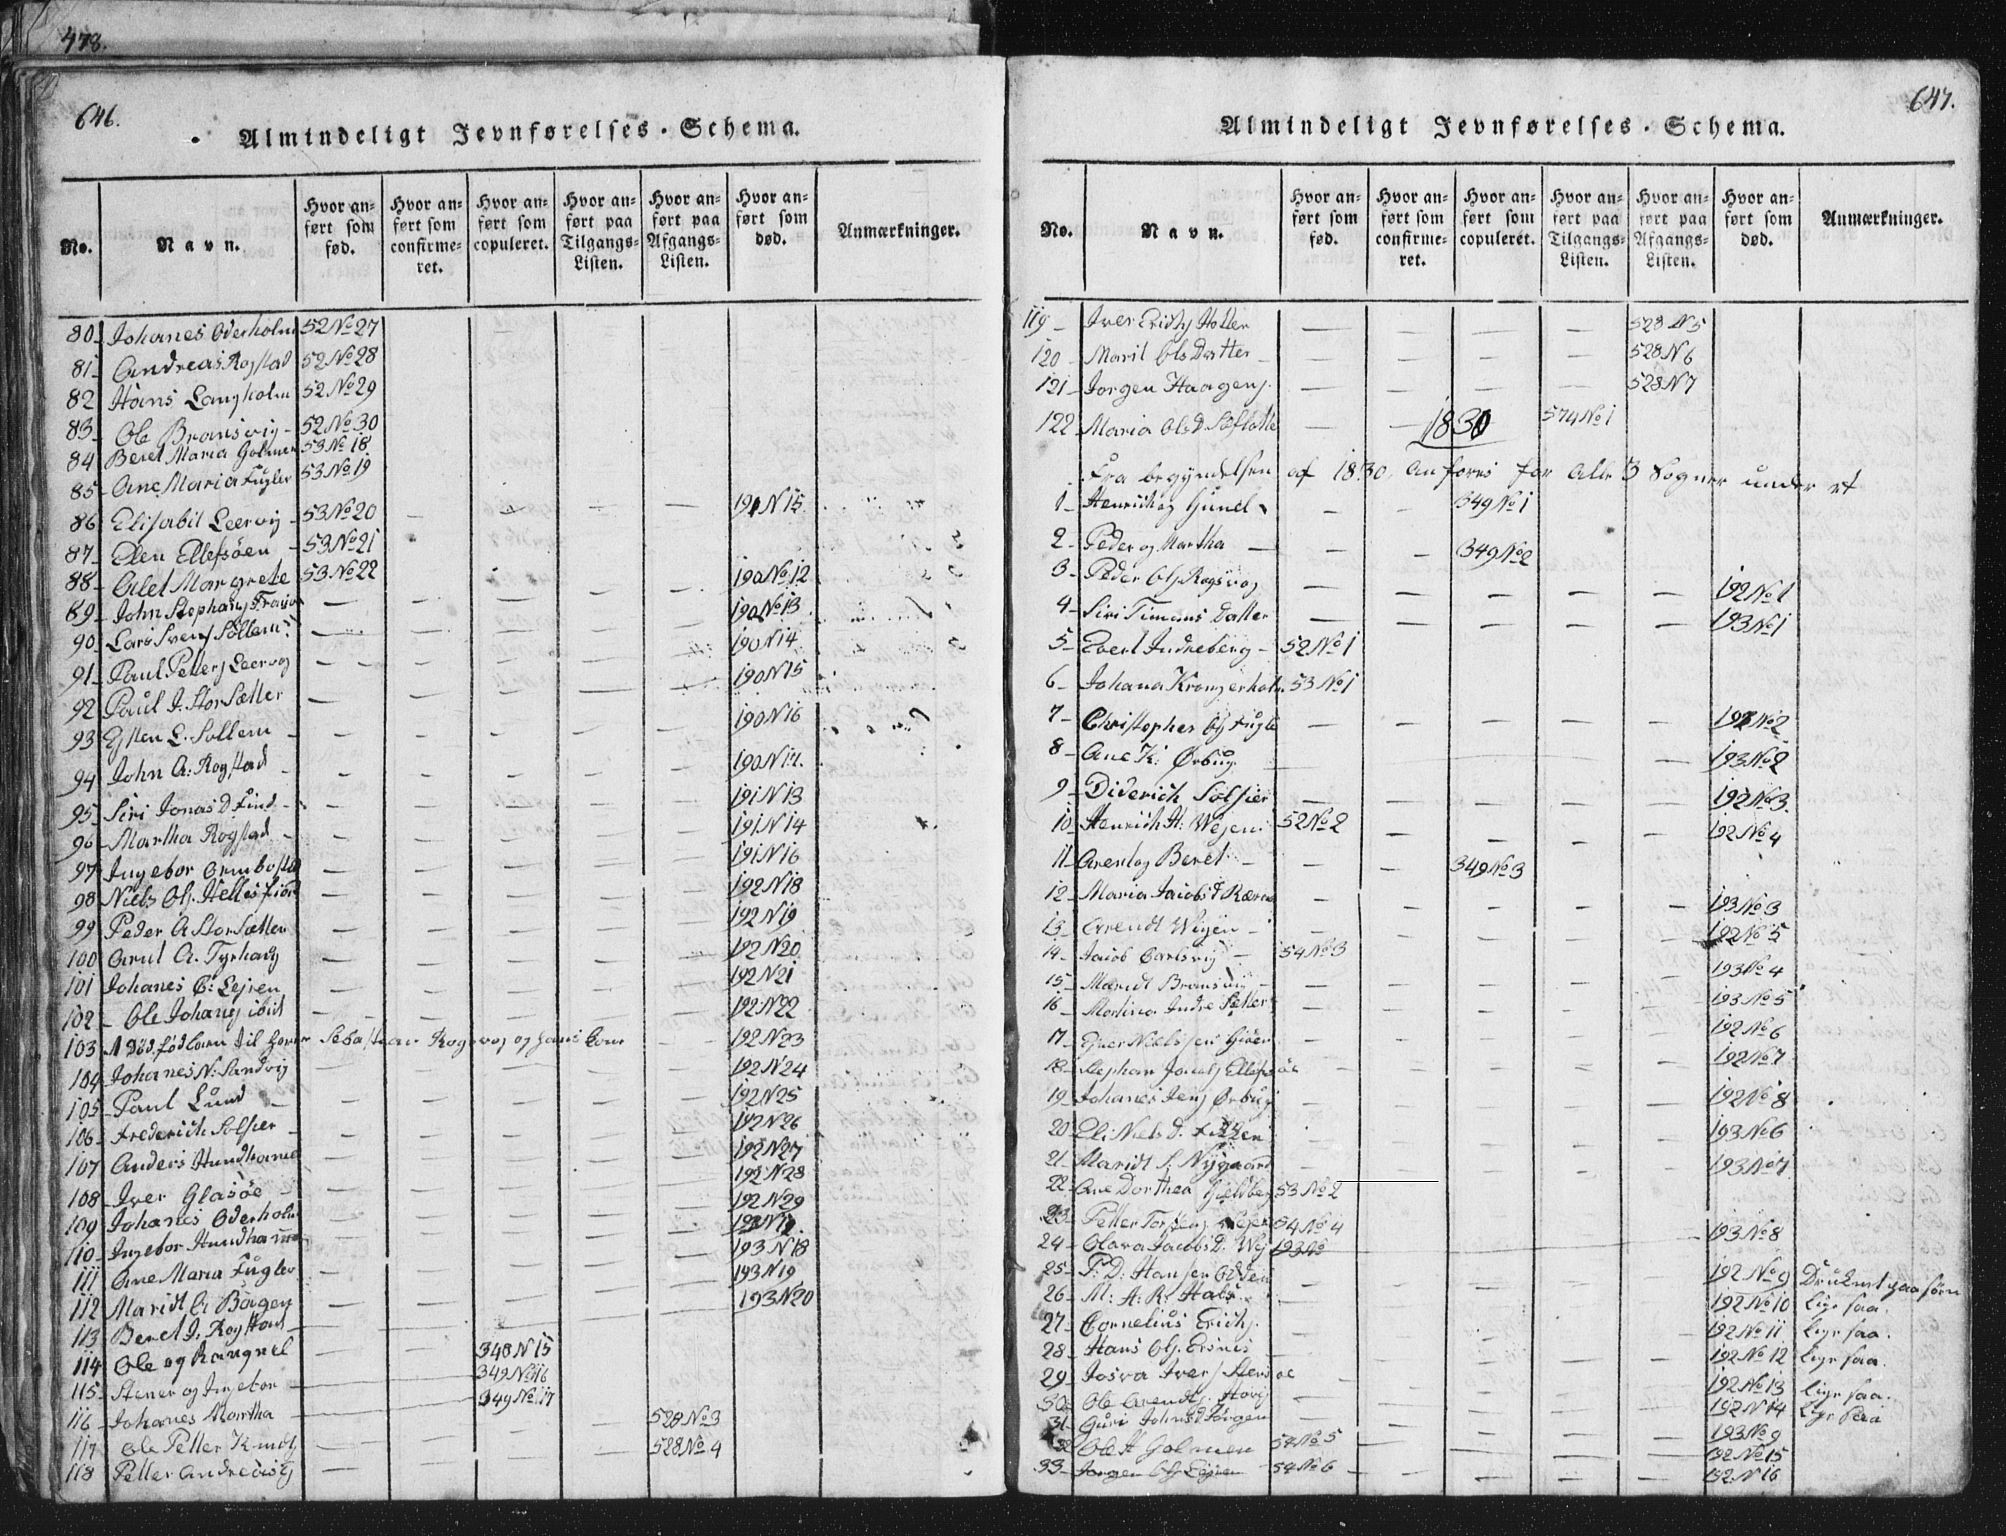 478.
646.
Almindeligt Jevnførelses-Schema.
No.
Navn.
Hvor anført som fød.
Hvor anført som confirmeret.
Hvor anført som copuleret.
Hvor anført paa Tilgangs-Listen.
Hvor anført paa Afgangs-Listen.
Hvor anført som død.
Anmærkninger.
80 Johanes Oderholm 52 No 27
81 Andreas Rogstad 52 No 28
82 Hans Langholm 52 No 29
83 Ole Bransvig 52 No 30
84 Beret Maria Golmen 53 No 18
85 Ane Maria Fugler 53 No 19
86 Elisabit Leervig 53 No 20 191 N 15
87 Elen Ellefsöen 53 No 21
88 Olet Margrete 53 No 22 190 No 12
89 John Stephans 190 No 13
90 Lars Svens Sollem 190 N 14
91 Paul Petters Leervog 190 N 15
92 Paul J. Stor Sætter
93 Esten L. Sollem 190 N 16
94 John A: Rogstad 190 N 17.
95 Siri Jonas D 191 N 13
96 Martha Rogstad 191 N 14
97 Ingebor 191 N 16
98 Niels Ols. 192 N 18
99 Peder A Stor Sætter 192 N 19
100 Arnt A. Tyrhaug 192 N 20
101 Johanes C: Lejren 192 N 21
102 Ole Johans ibid 192 N 22
103 1 død fød barn til Sebastian Rogsvog og hans Kone 192 N 23
104 Johanes N: Sandvig 192 N 24
105 Paul Lund 192 N 25
106 Frederich Solsier 192 N 26
107 Anders Hundhame 192 N 27
108 Iver Glasöe 192 N 28
109 Johanes Oderholm 192 N 29
110 Ingebor Hundhamme
111 Ane Maria Fugler 193 N 18
112 Marit A Bögen 193 N 19
113 Beret J. Rogstad 193 N 20
114 Ole og Rangnel 348 N 15
115 Stener og Ingebor 349 No 16
116 Johanes Martha 349 No 17
117 Ole Petter Knuds 528 No 3
118 Petter Andreas 528 No 4
647.
Almindeligt Jevnførelses-Schema.
No.
Navn.
Hvor anført som fød.
Hvor anført som confirmeret.
Hvor anført som copuleret.
Hvor anført paa Tilgangs-Listen.
Hvor anført paa Afgangs-Listen.
Hvor anført som død.
Anmærkninger.
119 Iver Erichs 528 N 5
120 Marit Ols Datter 528 N 6
121 Jorgen Haagens. 528 N 7
122 Maria Ols D 574 No 1
1830
Fra begyndelsen af 1830 anføres for alle 3 Sogner under et
1 Henrich og Gunel 349 No 1
2 Peder og Martha 349 No 2
3 Peder Ols Rogsvog 192 No 1
4 Siri Timans Datter 193 No 1
5 Evert Indreberg 52 No 1
6 Johana 53 No 1
7 Christopher Ols Fugle 192 No 2
8 Ane K: Ørbug 193 No 2
9 Diderich Solsier 192 No 3.
10 Henrich H: Wejen 52 No 2 192 No 4
11 Arent og Beret 349 No 3
12 Maria Jacobs d 193 No 3
13 Arendt Wejen 192 No 5
14 Jacob Carlsvig 54 No 3
15 Marit Bransvig 193 No 4
16 Martina Indre Sætter 193 No 5
17 Niels sen 192 No 6
18 Stephan Jacobs Ellefsöe 192 No 7
19 Johanes Jens Ørbug 192 No 8
20 Eli Niels D. 193 No 6
21 Marit S: Nygaard 193 No 7
22 Ane Dorthea 53 No 2
23 Petter 54 No 4
24 Olava Jacobs D. Wej 193 No 193 No 8
25 P: D: Hansen 192 No 9
26 M: A: R: Hals 192 No 10 lige saa.
27 Cornelius Erichs. 192 No 11 lige saa.
28 Hans Ols. 192 No 12 lige saa.
29 Iver 192 No 13 lige saa.
30 Ole Arendts. 192 N 14 lige saa
31 Guri Johns d 193 No 9
32 Ole H Golmen 54 No 5 192 No 15
33 Jorgen Ols Lejren 54 No 6 192 N 16